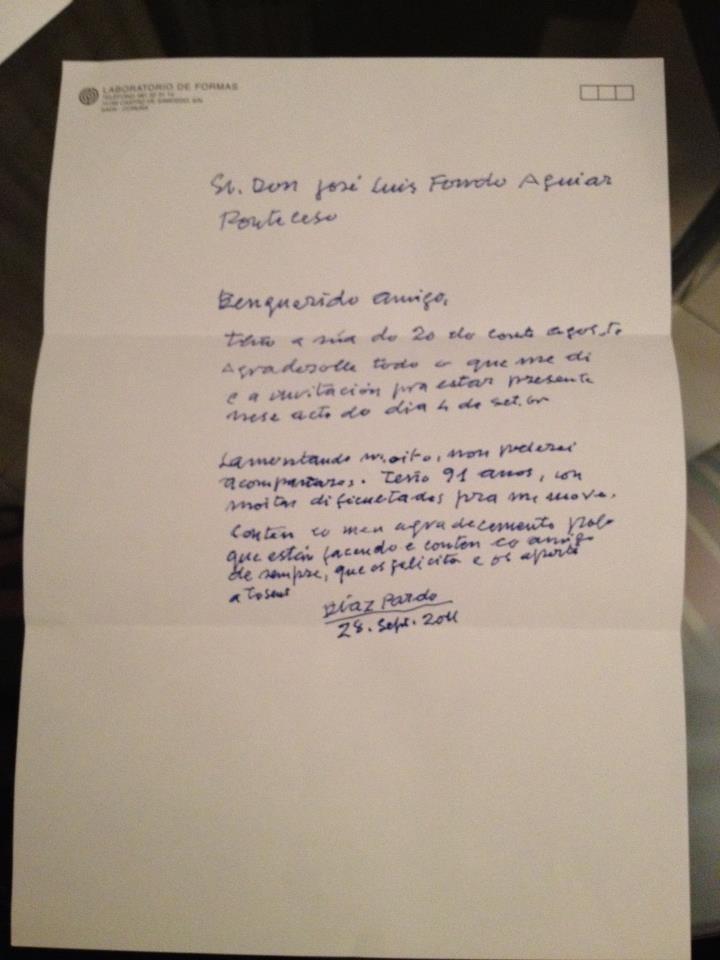 LABORATORIO DE FORMAS
TELÉFONO 981 62 02 
15168 CASTRO DE SAMOEDO, S/N
SADA - CORUÑA
Sr. Don José Luis Fondo Aguiar
Ponteceso
Benquerido amigo,
Teño a súa do 20 do agosto
Agradezolle todo o que me di
e a invitación pra estar presente
nese acto do día 4 de
Lamentando moito, non poderei
acompañaros. Teño 91 anos, con
moitas dificultades pra me mover.
Conten co meu agradecemento polo
que están facendo e conten co amigo
de sempre, que os felicita e os aperta
Díaz Pardo
28. Sept. 2011